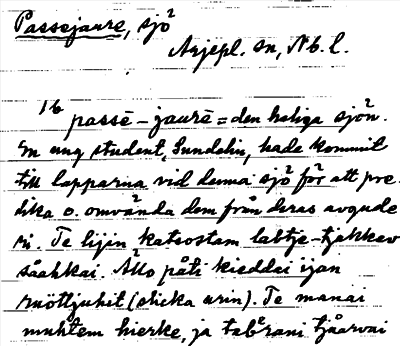 Passejaure, sjö
Arjepl. sn, Nb. l.
16 passē - jaurē = den heliga sjön.
En ung student, Lundelin, hade kommit
till lapparna vid denna sjö för att pre-
dika o. omvända dem från deras avgude-
ri. Te lijin katsostam labtje-tjakkev
såahkai. Allo påti kieddai ijan
(skicka urin). Te manai
muhtem hierke, ja tjåarvai